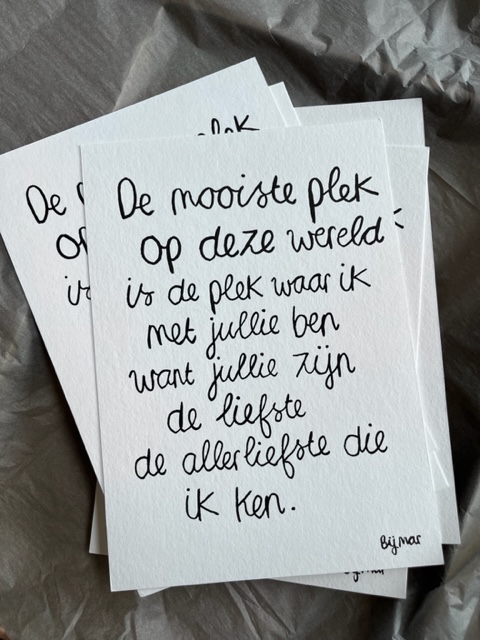 De mooiste plek
op deze wereld
is de plek waar ik
met jullie ben
want jullie zijn
de liefste
de allerliefste die
ik ken.
Bijmar
De
op
is
plek